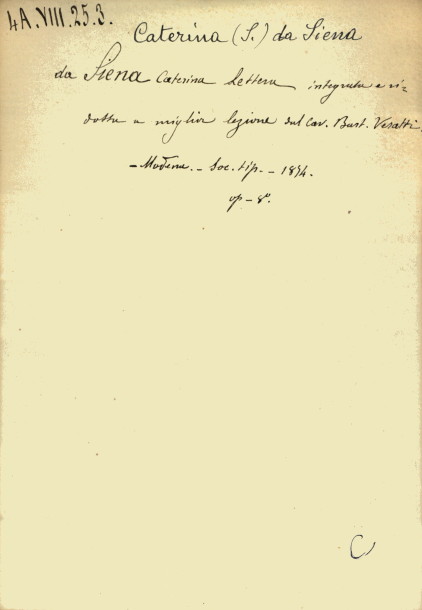 4A.VIII.25.3.
Caterina (S.) da Siena
da Siena Caterina Lettera integrata e ri-
dotta a miglior lezione dal Cav. Bart. Veratti.
- Modena. - Soc. tip. - 1894.
op - 8°.
C